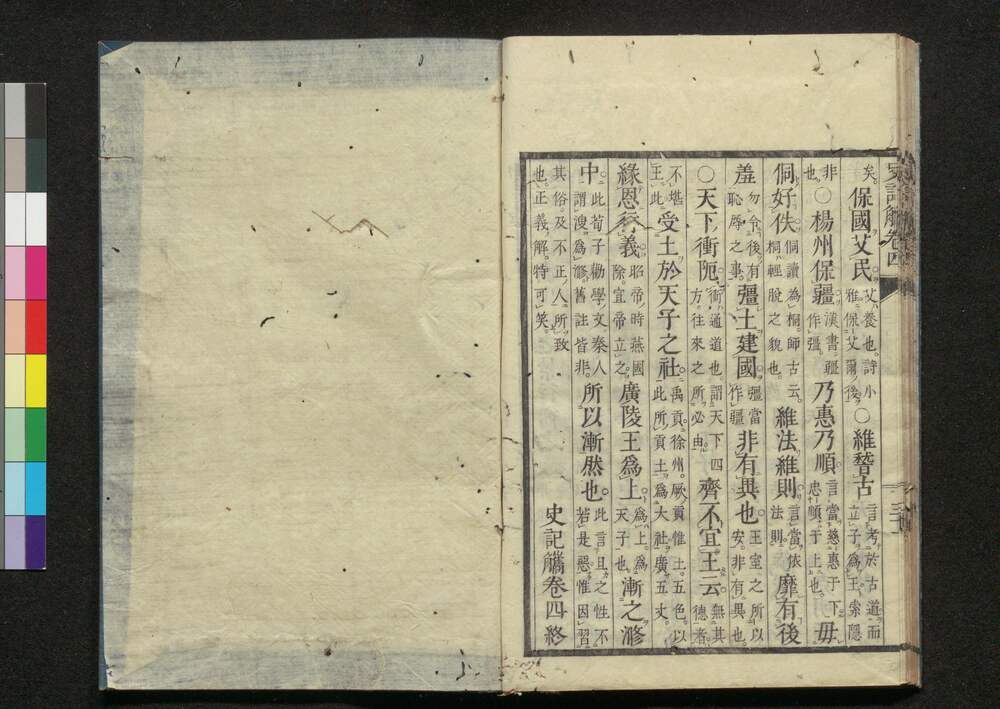 矣。保國艾民。艾養也。詩小雅。保艾爾後。○維稽古言考於古道。而立子爲王。索隱
非也。○楊州保疆漢書。疆作彊。乃惠乃順。言當慈惠于下忠順于上也。毋
侗好佚。侗讀爲桐。師古云。桐輕脫之貌也。維法維則。言當依法則。靡有後
羞。勿令後有恥辱之事。彊土建國。彊當作疆非有異也。王室之所以安。非有異也。
○天下衝阨。衝通道也。謂天下四方往來之所必由。齊不宜王云。無其德者。
不堪王此。受土於天子之社。禹貢。徐州。厥貢惟土五色。以此所貢土爲大社。廣五丈。
緣恩行義。昭帝時燕國除。宣帝立之。廣陵王爲上。爲上。爲天子也。漸之滫
中。此荀子勸學文。秦人謂溲爲滫。舊註皆非。所以漸然也。此言旦之性不若是。惡惟因習
其俗及不正人所致也。正義解。特可笑。
史記觿卷四終
史記觿卷四